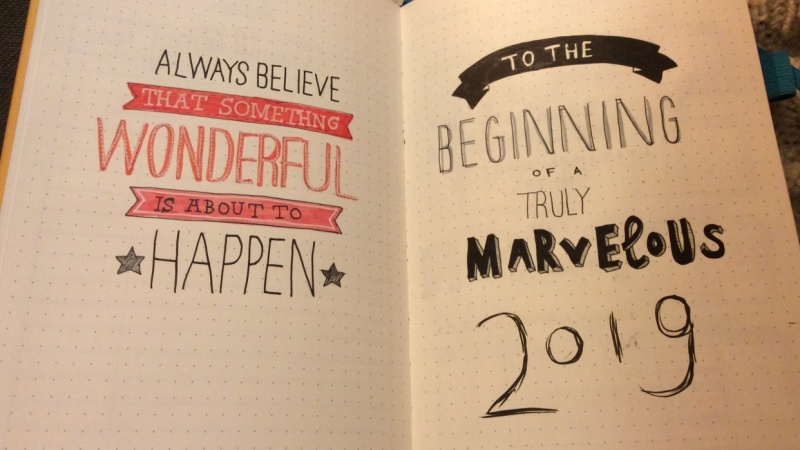 ALWAYS BELIEVE
THAT SOMETHNG
WONDERFUL
IS ABOUT TO
HAPPEN
TO THE
BEGINNING
OF A
TRULY
MARVELOUS
2019